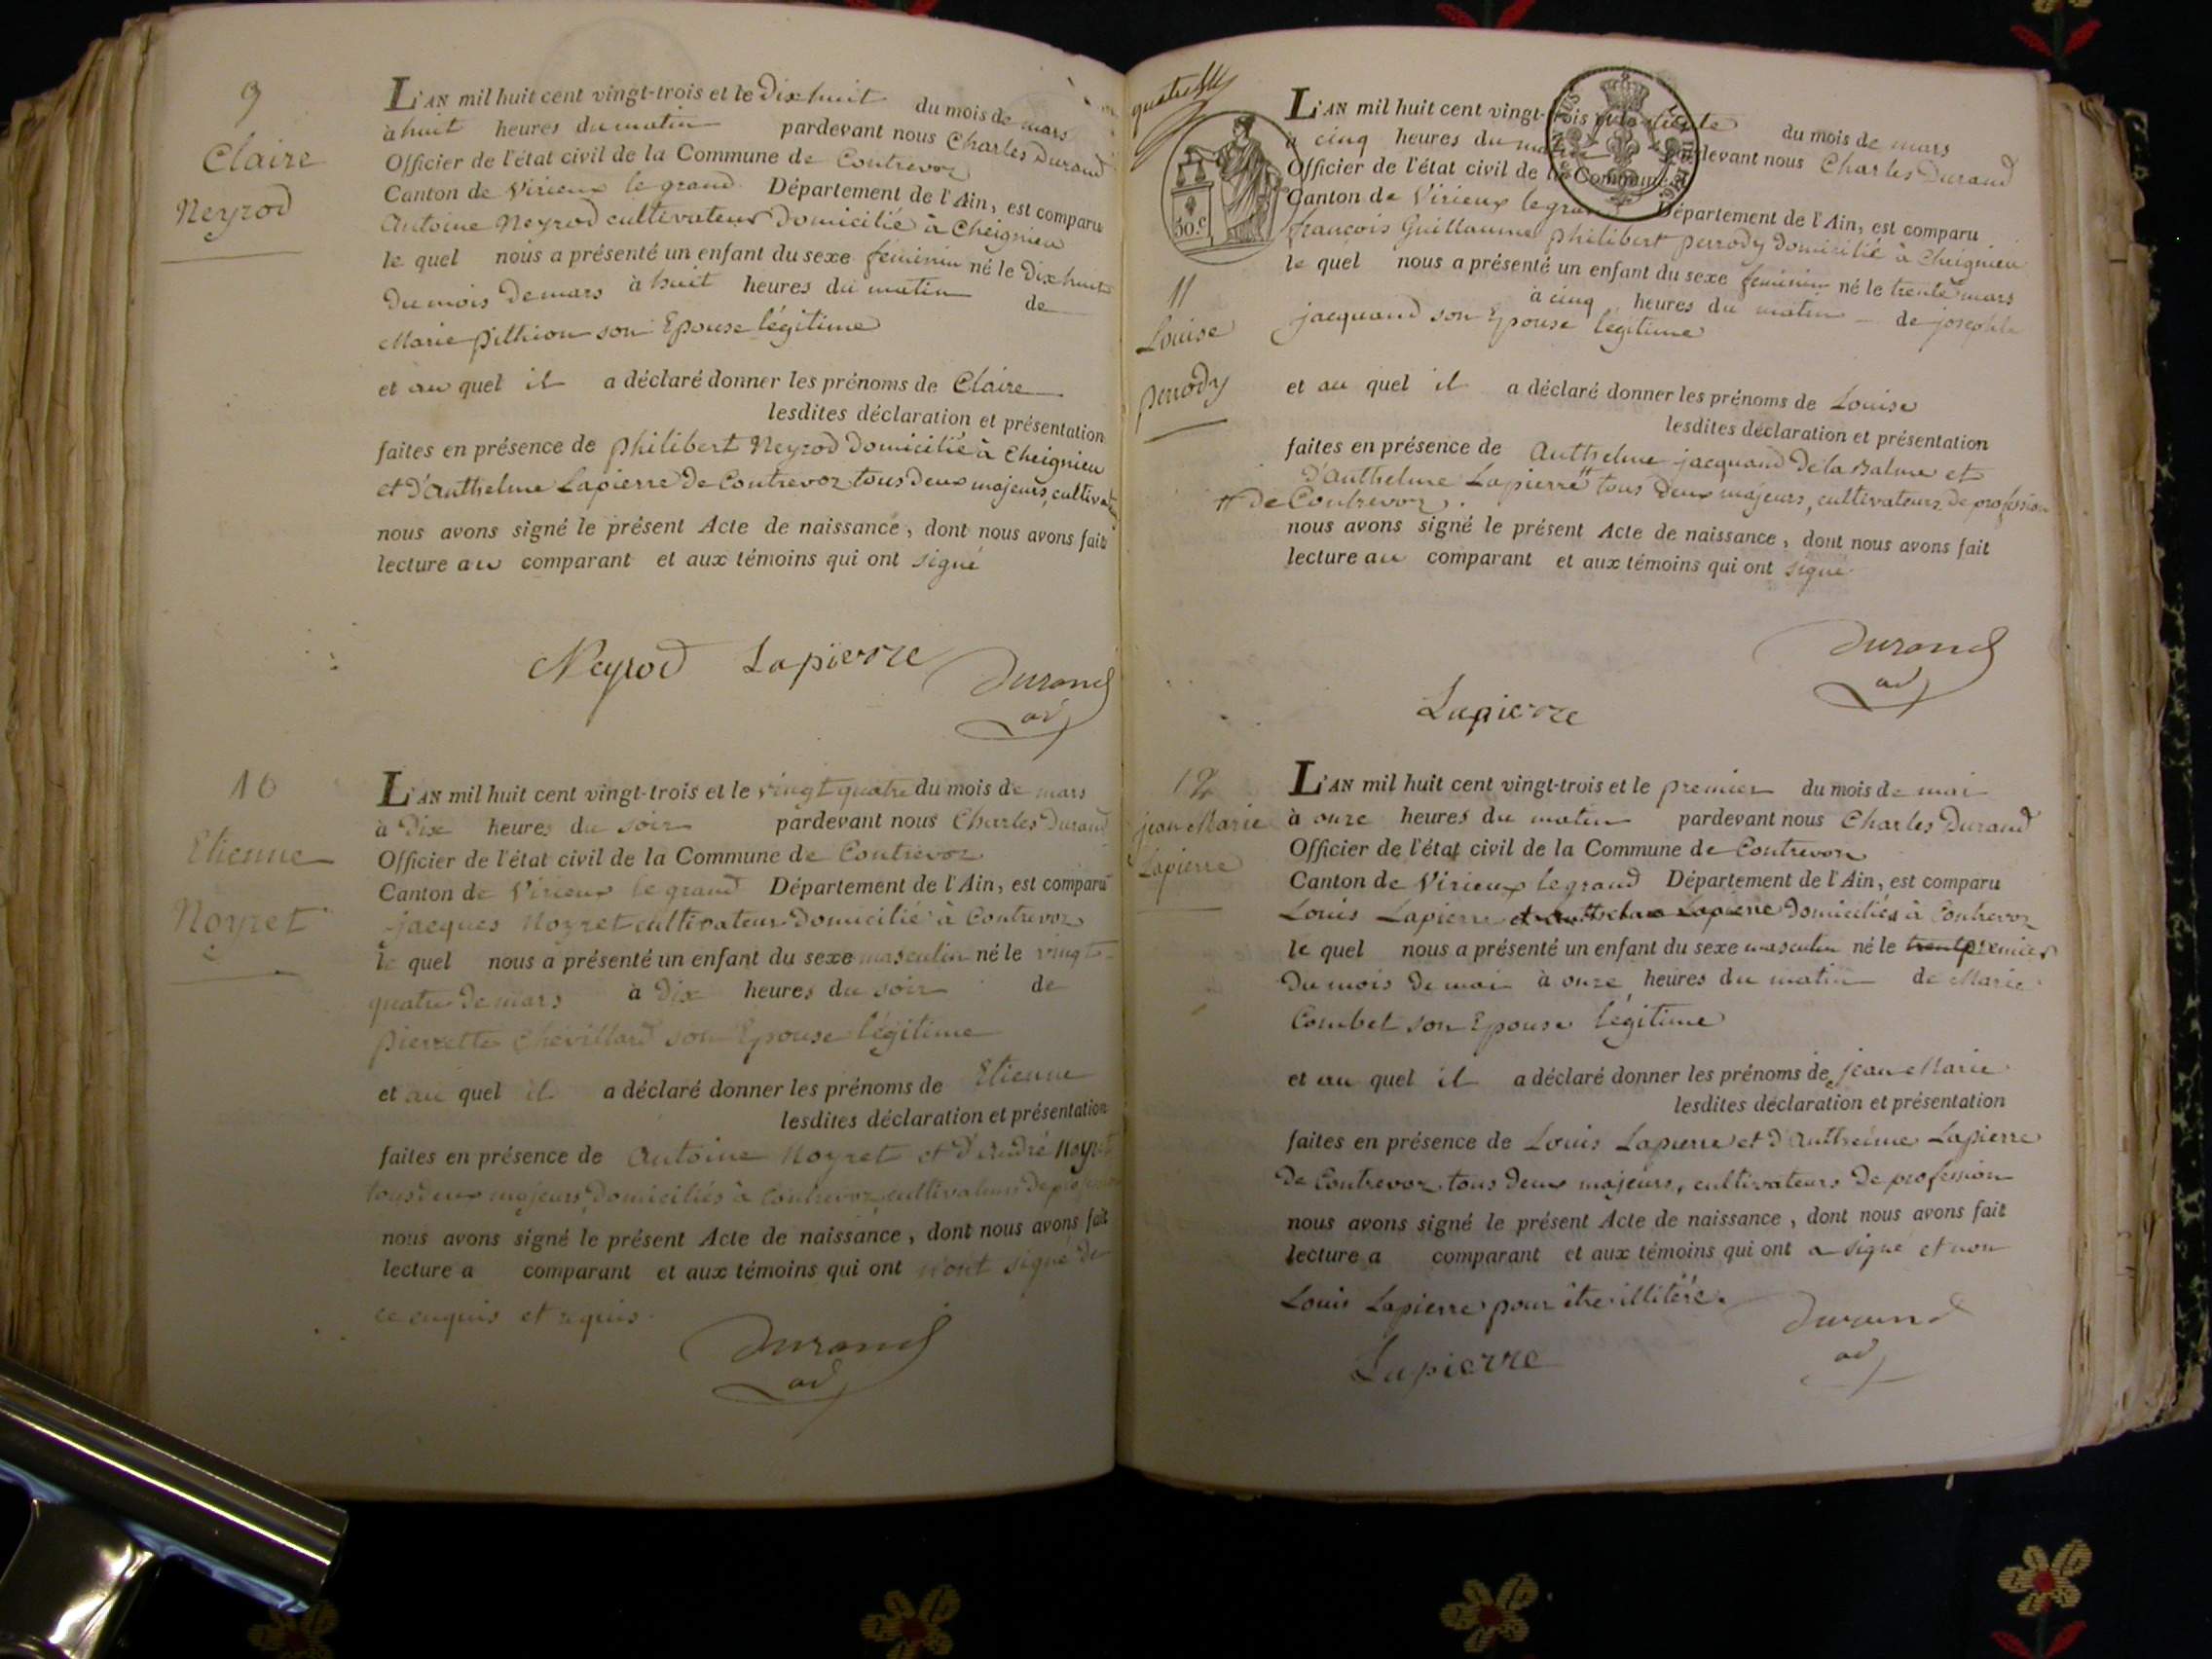 9
Claire
Neyrod
L'AN mil huit cent vingt-trois et le Dix huit du mois de mars
à huit heures du matin pardevant nous Charles Durand
Officier de l'état civil de la Commune de Contrevoz
Canton de Virieux le grand Département de l'Ain, est comparu
Antoine Neyrod cultivateur Domicilié à Cheignieu
le quel nous a présenté un enfant du sexe féminin né le Dix huit
Du mois De mars à huit heures du matin de
Marie pithion son Epouse légitime
et au quel il a déclaré donner les prénoms de Claire
lesdites déclaration et présentation
faites en présence de philibert Neyrod Domicilié à Cheignieu
et D'Anthelme Lapierre De Contrevoz tous Deux majeurs, cultivat
nous avons signé le présent Acte de naissance, dont nous avons fait
lecture au comparant et aux témoins qui ont signé
Neyrod Lapierre Durand
ad
10
Etienne
Noyret
L'AN mil huit cent vingt-trois et le vingt quatre du mois de mars
à Dix heures du soir pardevant nous Charles Durand
Officier de l'état civil de la Commune de Contrevoz
Canton de Virieux le grand Département de l'Ain, est comparu
jacques Noyret cultivateur Domicilié à Contrevoz
le quel nous a présenté un enfant du sexe masculin né le vingt
quatre De mars à Dix heures du soir de
pierrette Chevillard son Epouse légitime
et au quel il a déclaré donner les prénoms de Etienne
lesdites déclaration et présentation
faites en présence de Antoine Noyret et D'André Noyret
tous deux majeurs, Domiciliés à Contrevoz, cultivateurs De profession
nous avons signé le présent Acte de naissance, dont nous avons fait
lecture a comparant et aux témoins qui ont n'ont signé de
ce enquis et requis.
Durand
ad
50 c
11
Louise
perrody
L'AN mil huit cent vingt-trois et le trente du mois de mars
à cinq heures du matin pardevant nous Charles Durand
Officier de l'état civil de la Commune
Canton de Virieux le grand Département de l'Ain, est comparu
François Guillaume philibert perrody Domicilié à Cheignieu
le quel nous a présenté un enfant du sexe féminin né le trente mars
à cinq heures du matin de josephte
jacquand son Epouse légitime
et au quel il a déclaré donner les prénoms de Louise
lesdites déclaration et présentation
faites en présence de Anthelme jacquand De la Balme et
D'Anthelme Lapierre # tous Deux majeurs, cultivateurs, De profession
# De Contrevoz.
nous avons signé le présent Acte de naissance, dont nous avons fait
lecture au comparant et aux témoins qui ont signé
Durand
ad
Lapierre
12
jean Marie
Lapierre
L'AN mil huit cent vingt-trois et le premier du mois de mai
à onze heures du matin pardevant nous Charles Durand
Officier de l'état civil de la Commune de Contrevoz
Canton de Virieux le grand Département de l'Ain, est comparu
Louis Lapierre et Anthelme Lapierre Domiciliés à Contrevoz
le quel nous a présenté un enfant du sexe masculin né le trent premier
Du mois De mai à onze heures du matin de Marie
Combet son Epouse légitime
et au quel il a déclaré donner les prénoms de jean Marie
lesdites déclaration et présentation
faites en présence de Louis Lapierre et D'Anthelme Lapierre
De Contrevoz tous Deux majeurs, cultivateurs De profession
nous avons signé le présent Acte de naissance, dont nous avons fait
lecture a comparant et aux témoins qui ont a signé et non
Louis Lapierre pour être illitéré.
Durand
ad
Lapierre